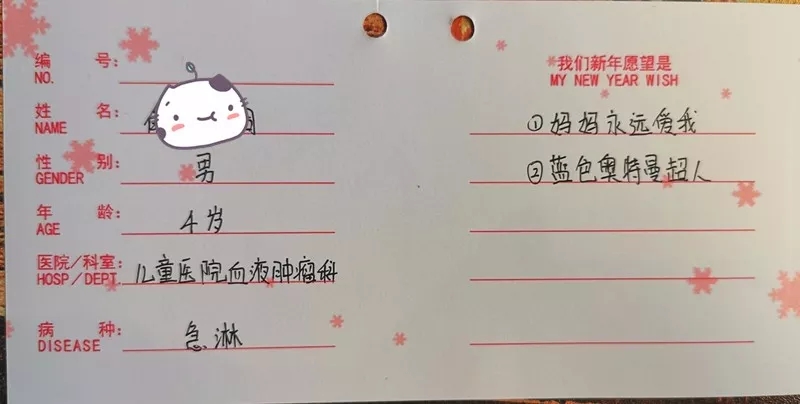 编 号:
NO.
姓 名:
NAME
性 别: 男
GENDER
年 龄: 4岁
AGE
医院/科室: 儿童医院血液肿瘤科
HOSP/DEPT.
病 种: 急淋
DISEASE
我们新年愿望是
MY NEW YEAR WISH
①妈妈永远爱我
②蓝色奥特曼超人